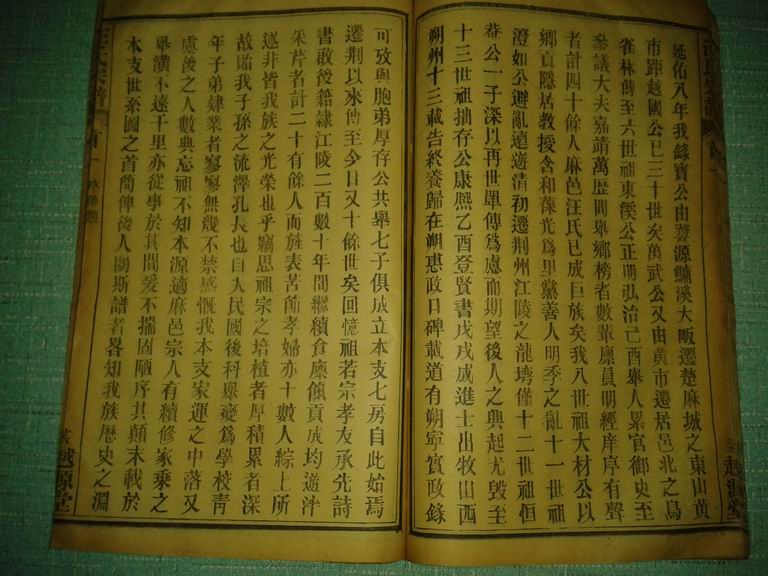 延佑八年我錄寶公由婺源鱅溪大畈遷楚麻城之東山黃
市距越國公已三十世矣萬武公又由黃市遷居邑北之烏
雀林傳至六世祖東溪公正明弘治己酉舉人累官御史至
參議大夫嘉靖萬歷間舉鄉榜者數輩廩員明經庠序有聲
者計四十餘人麻邑汪氏已成巨族矣我八世祖大材公以
鄉貢隱居教授含和葆光爲里黨善人明季之亂十一世祖
澄如公避亂遠遊清初遷荆州江陵之龍塆僅十二世祖恒
菴公一子深以再世單傳爲慮而期望後人之興起尤毀至
十三世祖拙存公康熙乙酉登賢書戊戌成進士出牧山西
朔州十三載告終養歸在朔惠政口碑載道有朔寧實政錄
可攷與胞弟厚存公共舉七子俱成立本支七房自此始焉
遷荆以來傳至今日又十餘世矣回憶祖若宗孝友承先詩
書啟後籍隸江陵二百數十年間繼續食廩餼貢成均遊泮
采芹者計二十有餘人而旌表苦節孝婦亦十數人綜上所
述非皆我族之光榮也乎竊思祖宗之培植者厚積累者深
故貽我子孫之流澤孔長也自人民國後科舉廢爲學校青
年子弟肄業者寥寥無幾不禁感慨我本支家運之中落又
慮後之人數典忘祖不知本源適麻邑宗人有續修家乘之
舉潢不遠千里亦從事於其間爰不揣固陋序其顛末載於
本支世系圖之首簡俾後人閱斯譜者畧知我族歷史之淵
汪氏宗譜
首一
越源堂